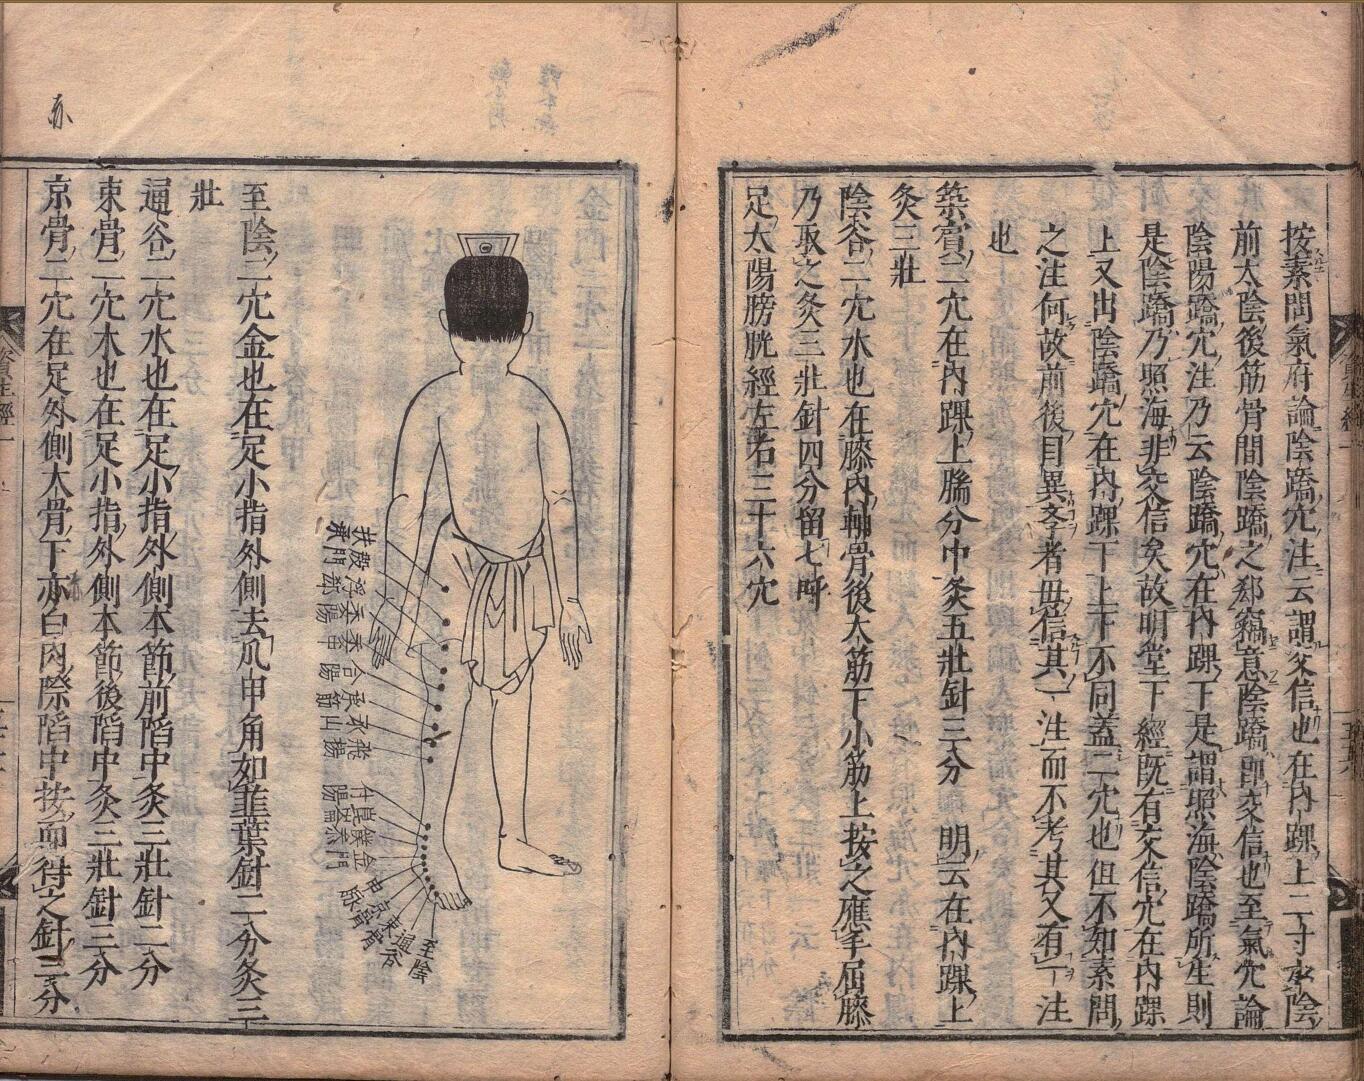 按素問氣府論陰蹻穴注云謂交信也在內踝上二寸少陰
前太陰後筋骨間陰蹻之郄竊意陰蹻即交信也至氣穴論
陰陽蹻穴注乃云陰蹻穴在內踝下是謂照海陰蹻所生則
是陰蹻乃照海非交信矣故明堂下經既有交信穴在內踝
上又出陰蹻穴在內踝下上下不同蓋二穴也但不如素問
之注何故前後自異學者毋信其一注而不考其又有一注
也
築賓二穴在內踝上腨分中灸五壯針三分 明云在內踝上
灸三壯
陰谷二穴水也在膝內輔骨後大筋下小筋上按之應手屈膝
乃取之灸三壯針四分留七呼
足太陽膀胱經左右三十六穴
資生經一
扶承
殷門
浮郄
委陽
委
合陽
承筋
承山
飛揚
付陽
崑崙
僕參
金門
申脈
京骨
束骨
通谷
至陰
至陰二穴金也在足小指外側去爪甲角如韭葉針二分灸三
壯
通谷二穴水也在足小指外側本節前陷中灸三壯針二分
束骨二穴木也在足小指外側本節後陷中灸三壯針三分
京骨二穴在足外側大骨下亦白肉際陷中按而得之針三分
資生經一